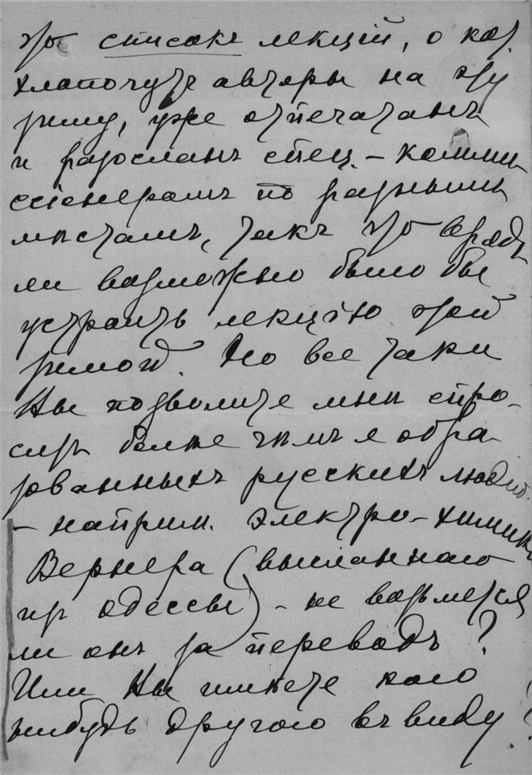 что списокъ лекцій, о кот.
хлопочутъ авторы на эту
зиму, уже отпечатанъ
и разосланъ спец. – коммис
сіонерамъ по разнымъ
мѣстамъ, такъ что врядъ
ли возможно было бы
устроить лекцію этой
зимой. Но все таки
Вы позволите мнѣ спро-
сить болѣе чѣмъ я обра
зованныхъ русскихъ людей
– наприм. электро-химика
Вернера (высланнаго
изъ Одессы) – не возьмется
ли онъ за переводъ?
Или Вы имѣете кого
нибудь другого въ виду?